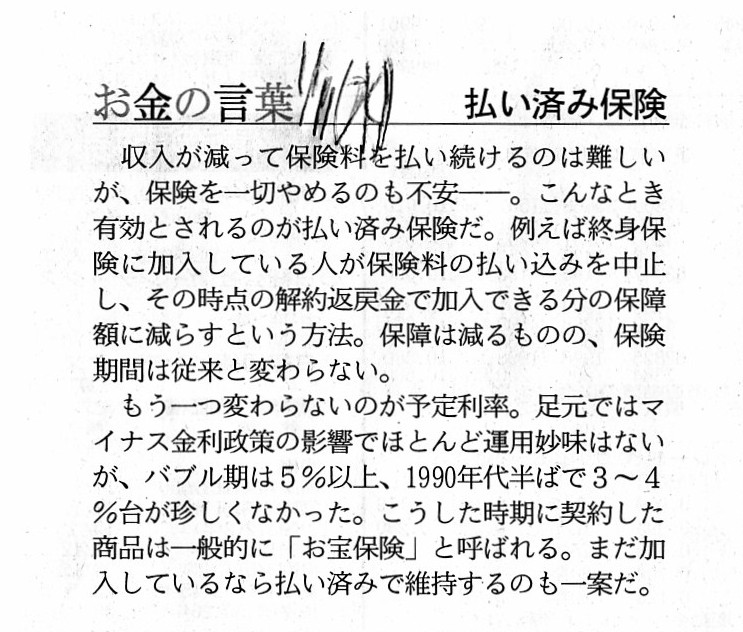 お金の言葉
払い済み保険
　収入が減って保険料を払い続けるのは難しい
が、保険を一切やめるのも不安――。こんなとき
有効とされるのが払い済み保険だ。例えば終身保
険に加入している人が保険料の払い込みを中止
し、その時点の解約返戻金で加入できる分の保障
額に減らすという方法。保障は減るものの、保険
期間は従来と変わらない。
　もう一つ変わらないのが予定利率。足元ではマ
イナス金利政策の影響でほとんど運用妙味はない
が、バブル期は５％以上、1990年代半ばで３～４
％台が珍しくなかった。こうした時期に契約した
商品は一般的に「お宝保険」と呼ばれる。まだ加
入しているなら払い済みで維持するのも一案だ。